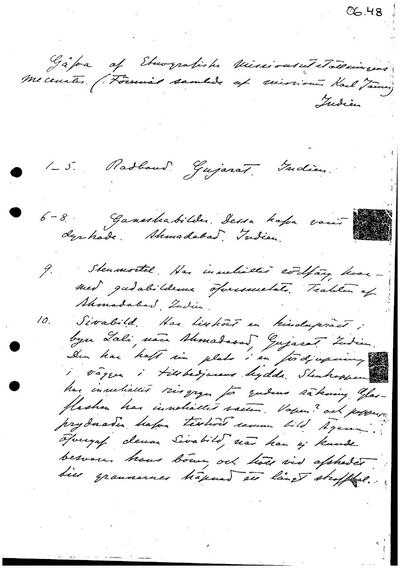 06.48
Gåfva af Etnografiska Missionsutställningens
mecenater. (Föremål samlade af missionär Karl
Indien
1-5. Radband. Gujarat. Indien.
6-8. Ganeshabilder. Dessa hafva varit
dyrkade. Ahmadabad. Indien.
9. Stenmortel. Har innehållit rödfärg, hvar-
med gudabilderna öfversmetats. Trakten af
Ahmadabad. Indien.
10. Sivabild. Har tillhört en hinduprest i
byn Lali, nära Ahmadabad, Gujarat Indien.
Den har haft sin plats i en fördjupning
i väggen i tillbedjarens hydda. Stenkoppen
har innehållit risgryn för gudens räkning Glas-
flaskan har innehållit vatten. Vapen? och
prydnaden hafva tillhört samma bild. Ägaren
öfvergaf denna Sivabild, när han ej kunde
besvara hans böner, och höll vid afskedet
till grannarnes häpnad ett långt strafftal.